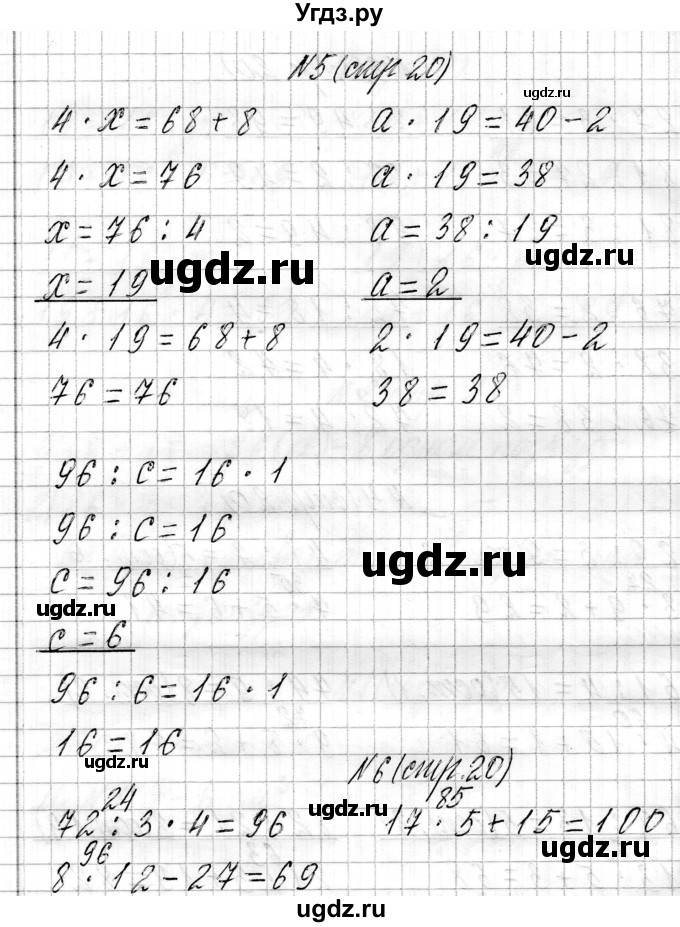 Угдз.ру
N5 (стр 20)
4 · x = 68 + 8
4 · x = 76
x = 76 : 4
x = 19
4 · 19 = 68 + 8
76 = 76
a · 19 = 40 - 2
a · 19 = 38
a = 38 : 19
a = 2
2 · 19 = 40 - 2
38 = 38
ugdz.ru
ugdz.ru
ugdz.ru
96 : c = 16 · 1
96 : c = 16
c = 96 : 16
c = 6
96 : 6 = 16 · 1
16 = 16
ugdz.ru
ugdz.ru
ugdz.ru
N6 (стр. 20)
24
72 : 3 · 4 = 96
96
8 · 12 - 27 = 69
85
17 · 5 + 15 = 100
ugdz.ru
ugdz.ru
ugdz.ru